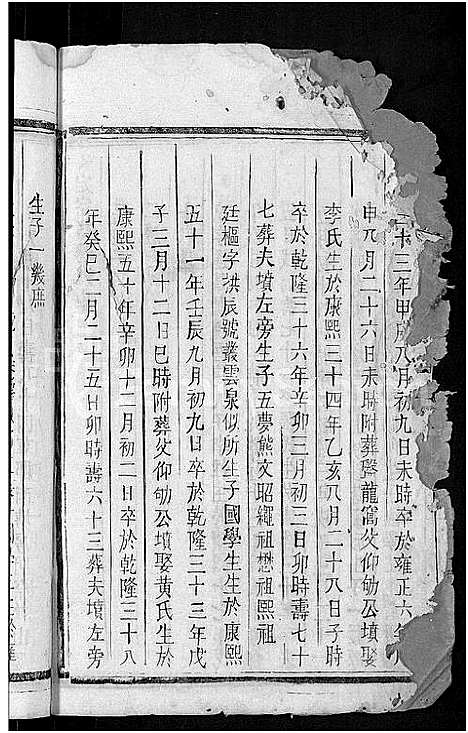 二十三年甲戌八月初九日未時卒於雍正六年
申八月二十六日未時附葬磬龍窩父仰劬公墳娶
李氏生於康熙三十四年乙亥八月二十八日子時
卒於乾隆三十六年辛卯三月初三日卯時壽七十
七葬夫墳左旁生子五夢熊文昭繩祖懋祖熙祖
廷樞字洪辰號叢雲泉似所生子國學生生於康熙
五十一年壬辰九月初九日卒於乾隆三十三年戊
子三月十二日巳時附葬父仰劬公墳娶黃氏生於
康熙五十年辛卯十二月初二日卒於乾隆三十八
年癸巳二月二十五日卯時壽六十三葬夫墳左旁
生子一幾庶